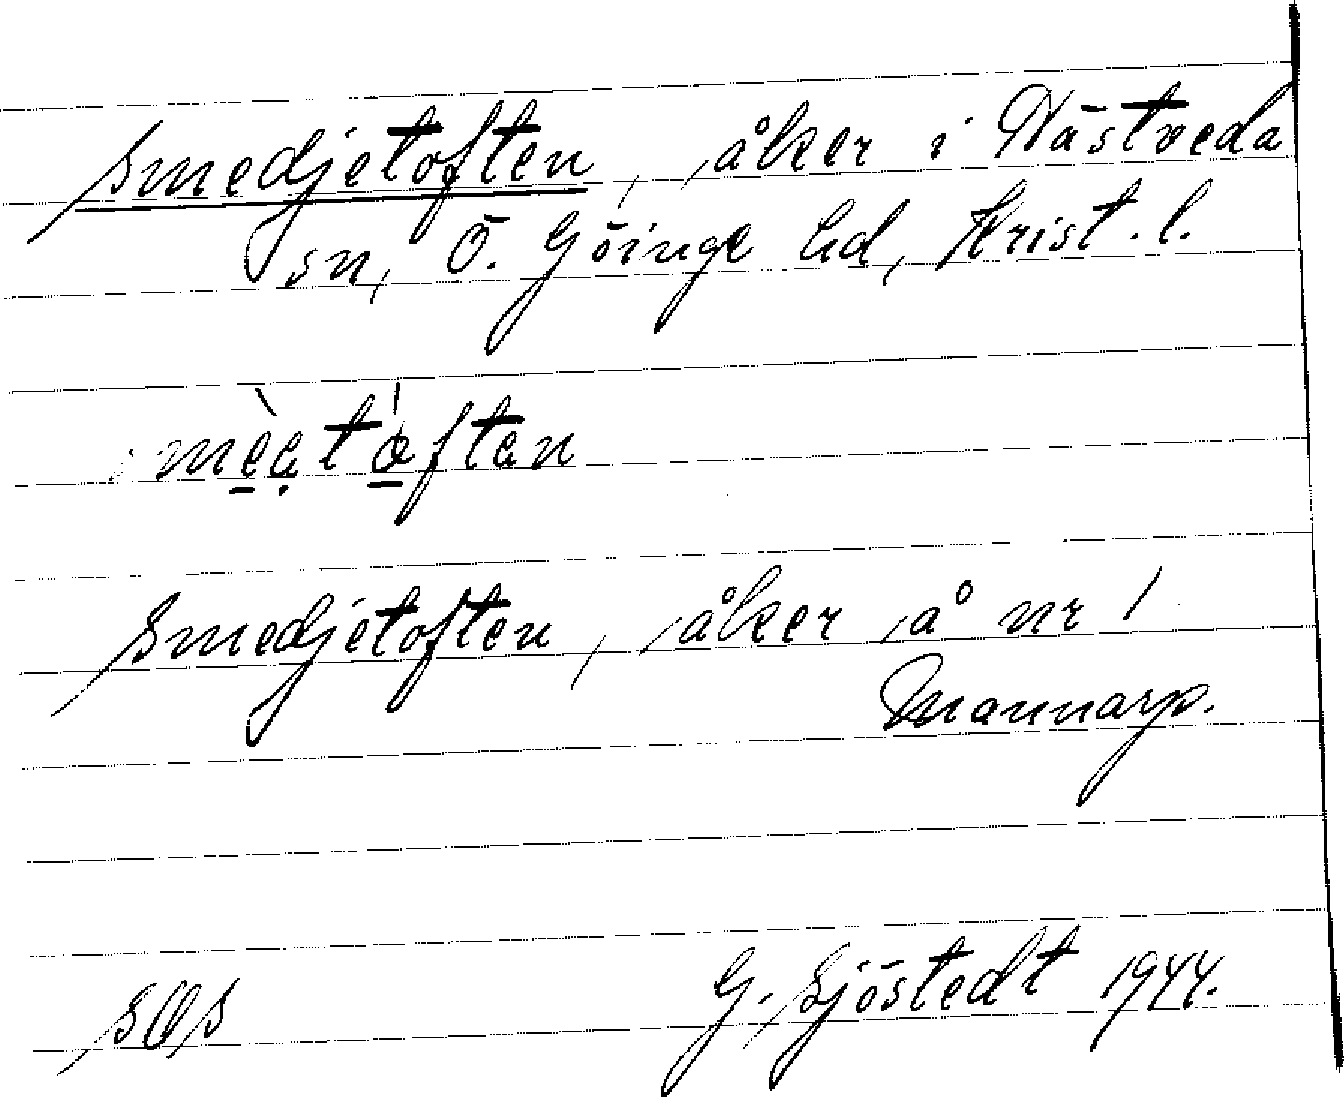 Smedjetoften, åker i Nästveda
sn, Ö. Göinge hd, Krist. l.
Smedjetoften, åker å nr 1
Mannarp.
G. Sjöstedt 1944.